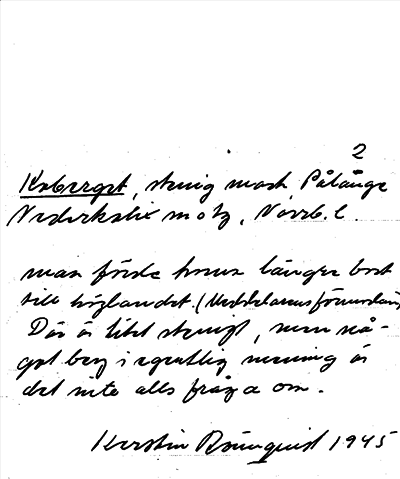 2
Koberget, stenig mark Pålänge
Nederkalix sn o tg, Norrb. l.
man förde korna längre bort
till höglandet. (Meddelarens förmodan)
Där är litet stenigt, men nå-
got berg i egentlig mening är
det inte alls fråga om.
Kerstin Rönnquist 1945